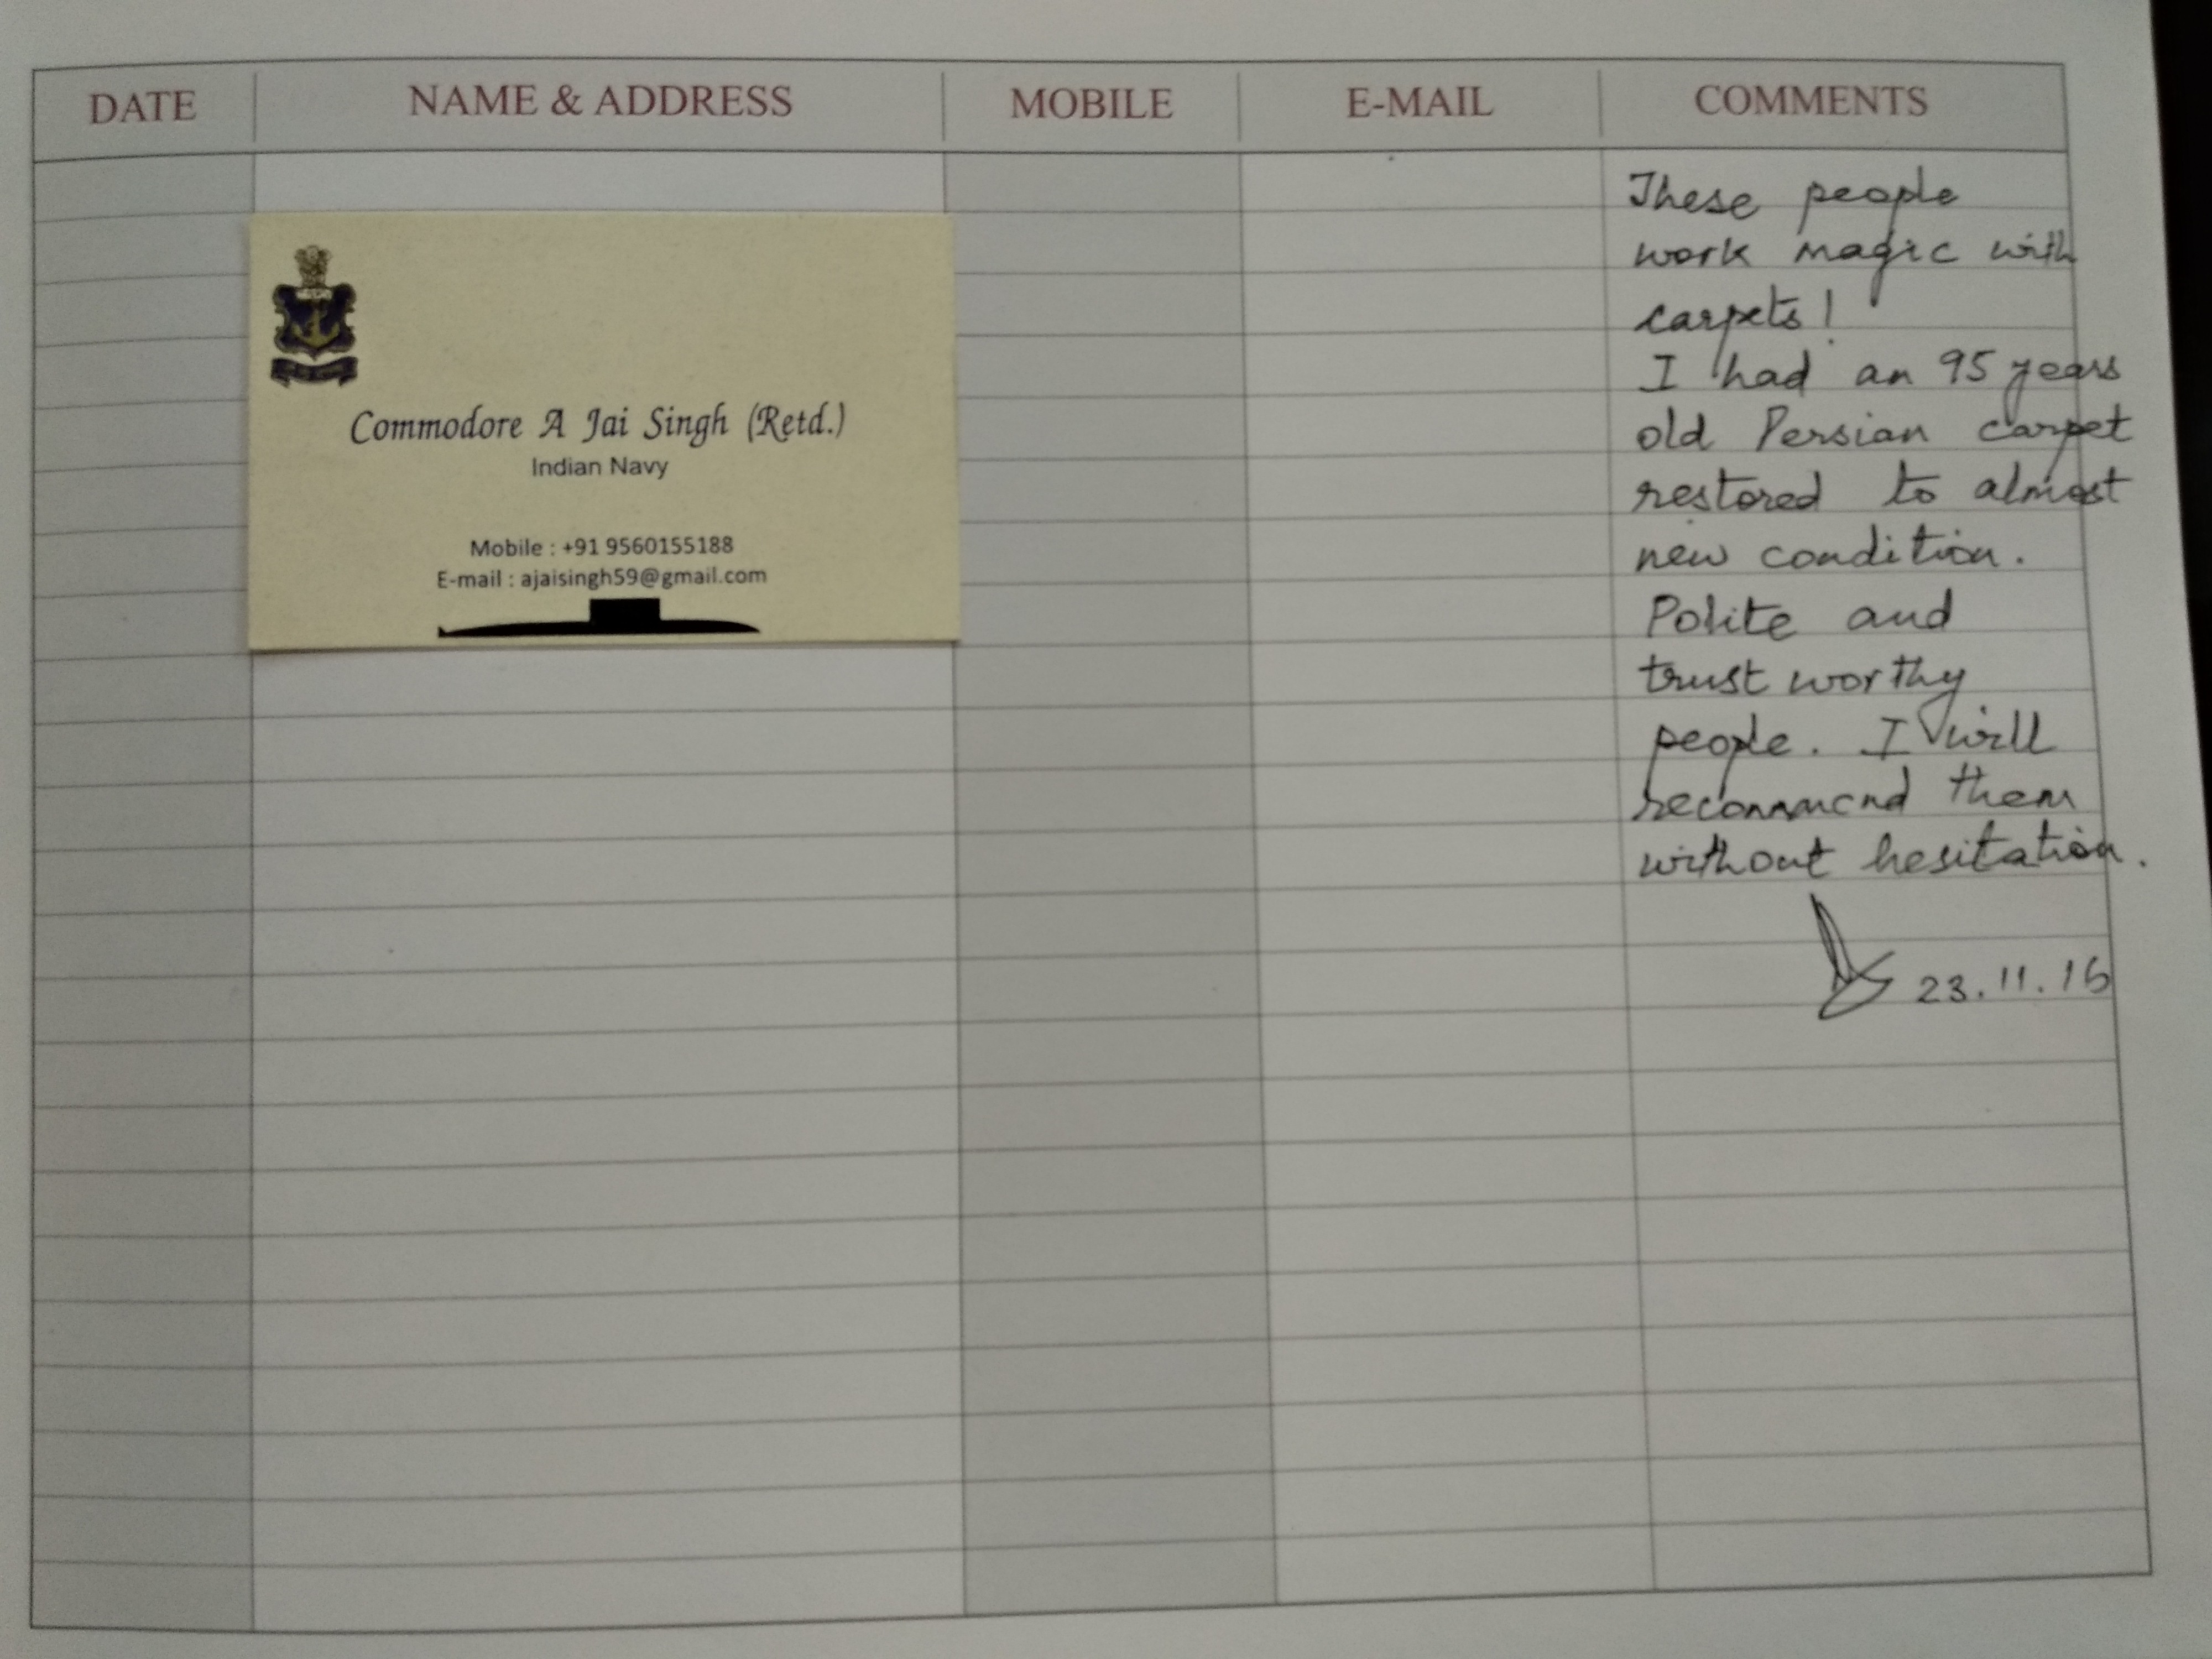 DATE NAME & ADDRESS MOBILE E-MAIL COMMENTS
Commodore A Jai Singh (Retd.)
Indian Navy
Mobile : +91 9560155188
E-mail : ajaisingh59@gmail.com
These people
work magic with
carpets!
I had an 95 years
old Persian carpet
restored to almost
new condition.
Polite and
trust worthy
people. I will
recommend them
without hesitation.
23.11.16